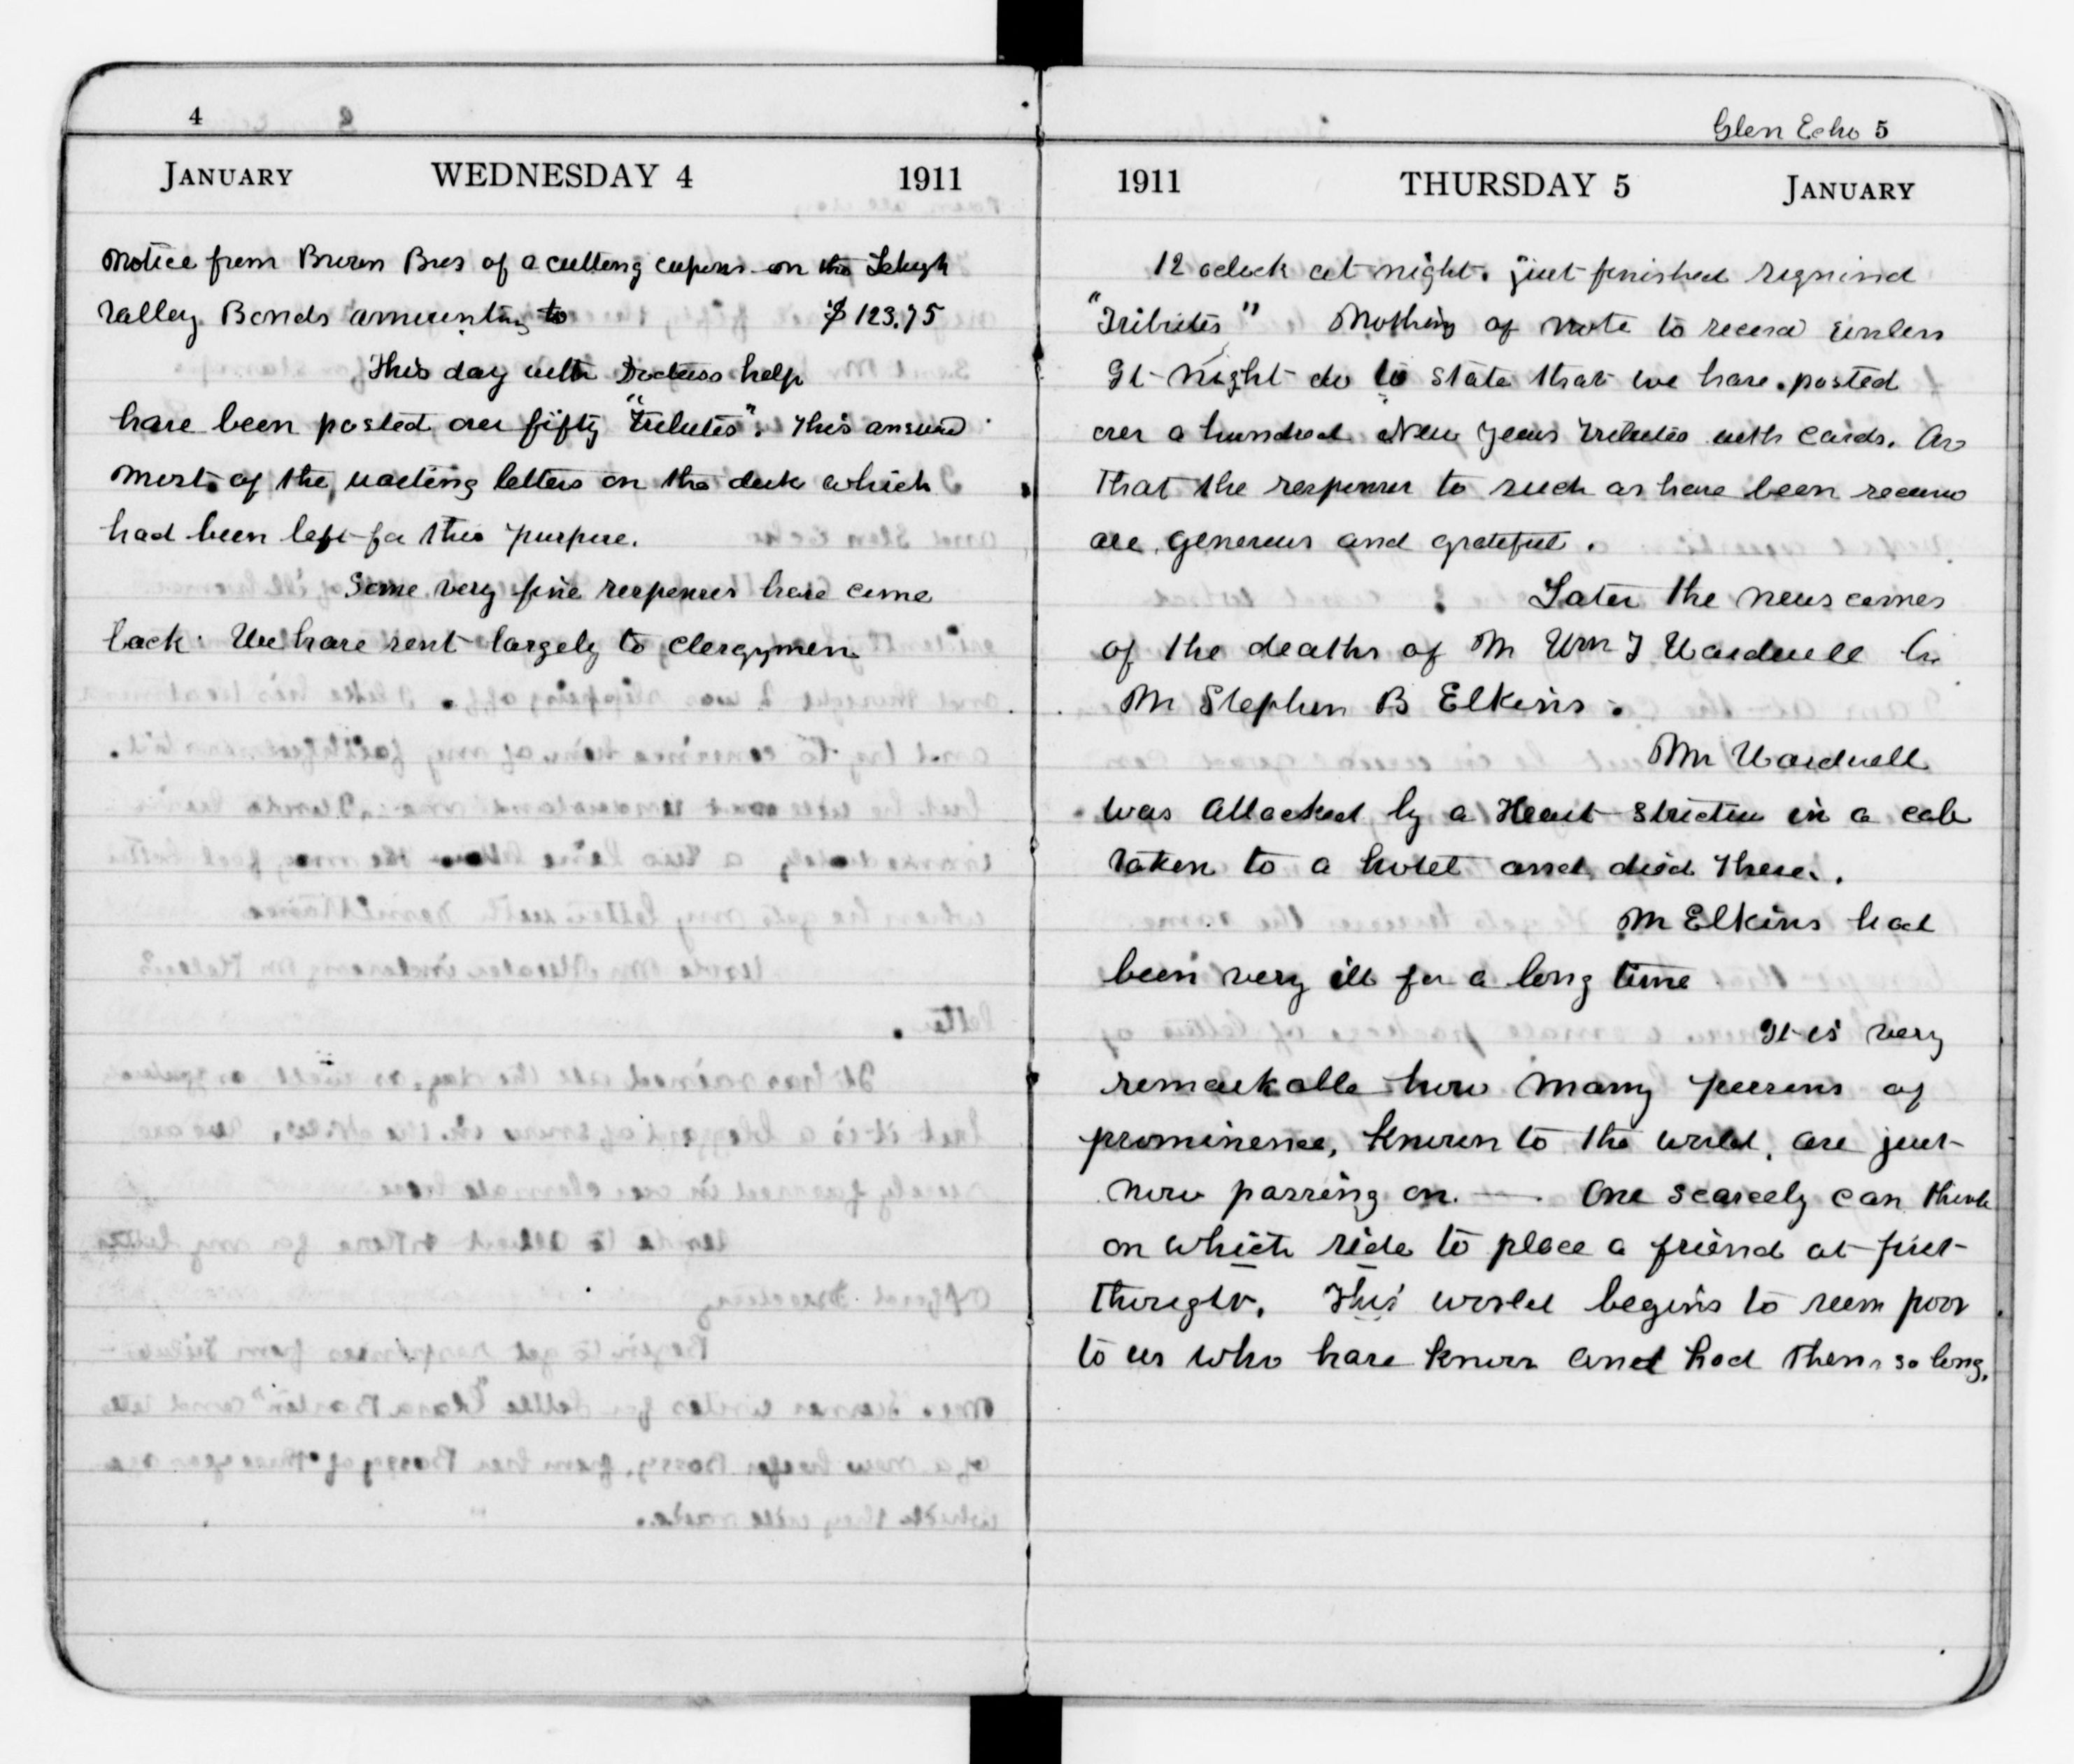 4
JANUARY WEDNESDAY 4 1911
Notice from Brown Bros of a cutting cupons on the Lehigh
Valley Bonds amounting to $123.75
This day with Doctors help
have been posted over fifty "Tributes". This answers
most of the waiting letters on the desk which
had been left for this purpose.
Some very fine responses have come
back. We have sent largely to Clergymen
Glen Echo 5
1911 THURSDAY 5 JANUARY
12 oclock at night. just finished signing
"Tributes" Nothing of note to record unless
It might do to state that we have posted
over a hundred New Years Tributes with cards.
That the responses to such as have been received
are generous and grateful.
Later the news comes
of the deaths of Mr Wm T Wardwell &
Mr Stephen B Elkins.
Mr Wardwell
was attacked by a Heart stricture in a cab
taken to a hotel and died there.
Mr Elkins had
been very ill for a long time
It is very
remarkable how many persons of
prominence, known to the world, are just
now passing on. — . One scarcely can think
on which side to place a friend at first
thought. This world begins to seem poor
to us who have known and had them so long.